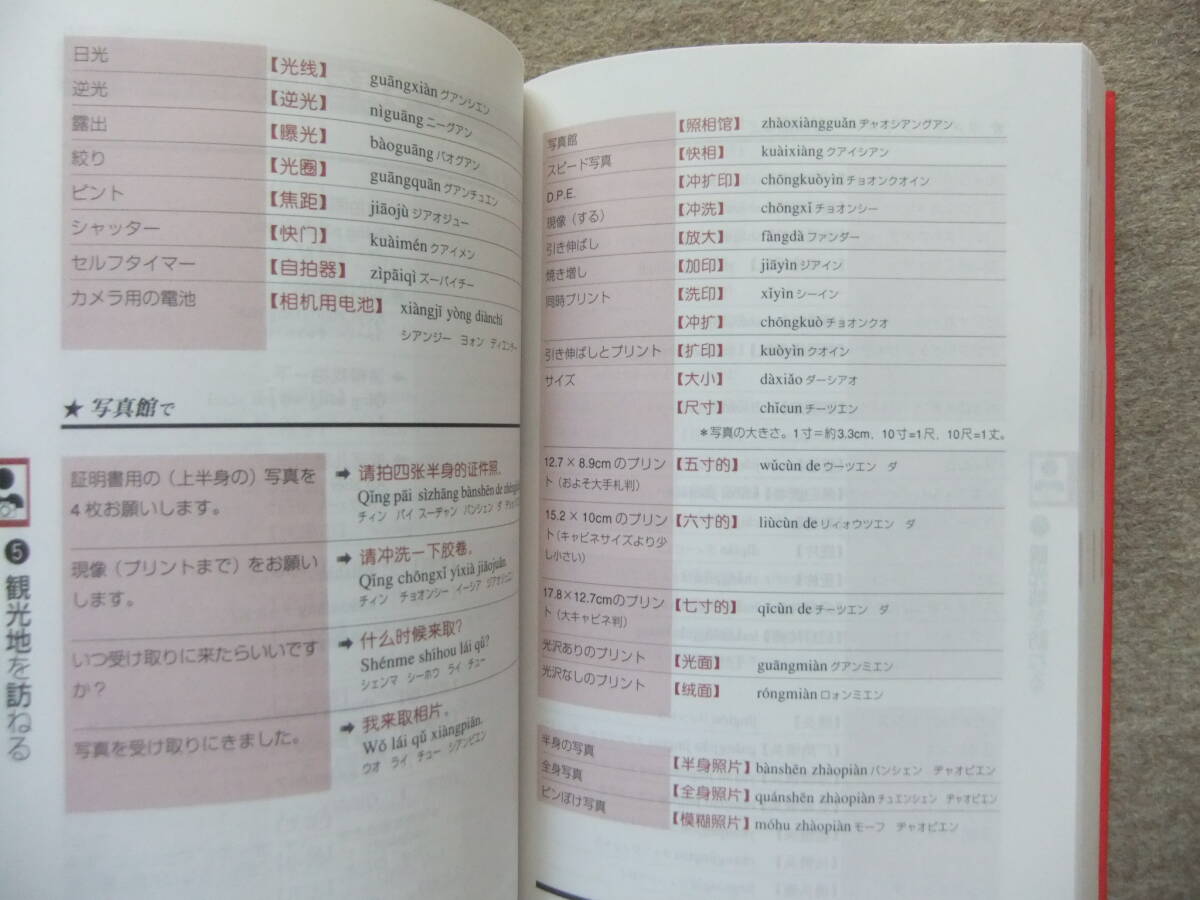 日光 【光线】 guāngxiàn グアンシエン
逆光 【逆光】 nìguāng ニーグアン
露出 【曝光】 bàoguāng バオグアン
絞り 【光圈】 guāngquān グアンチュエン
ピント 【焦距】 jiāojù ジアオジュー
シャッター 【快门】 kuàimén クアイメン
セルフタイマー 【自拍器】 zìpāiqì ズーパイチー
カメラ用の電池 【相机用电池】 xiàngjī yòng diànchí
シアンジー ヨォン ディエンチー
★ 写真館で
証明書用の（上半身の）写真を
4枚お願いします。
➡ 请拍四张半身的证件照。
Qǐng pāi sìzhāng bànshēn de
チィン パイ スーヂャン バンシェン ダ
現像（プリントまで）をお願い
します。
➡ 请冲洗一下胶卷。
Qǐng chōngxǐ yíxià jiāojuǎn.
チィン チョオンシー イーシア ジアオジュエン
いつ受け取りに来たらいいです
か？
➡ 什么时候来取？
Shénme shíhou lái qǔ?
シェンマ シーホウ ライ チュー
写真を受け取りにきました。
➡ 我来取相片。
Wǒ lái qǔ xiàngpiān.
ウオ ライ チュー シアンピエン
❺ 観光地を訪ねる
写真館 【照相馆】 zhàoxiàngguǎn ヂャオシアングアン
スピード写真 【快相】 kuàixiàng クアイシアン
D.P.E. 【冲扩印】 chōngkuòyìn チョオンクオイン
現像（する） 【冲洗】 chōngxǐ チョオンシー
引き伸ばし 【放大】 fàngdà ファンダー
焼き増し 【加印】 jiāyìn ジアイン
同時プリント 【洗印】 xǐyìn シーイン
【冲扩】 chōngkuò チョオンクオ
引き伸ばしとプリント 【扩印】 kuòyìn クオイン
サイズ 【大小】 dàxiǎo ダーシアオ
【尺寸】 chǐcun チーツエン
＊写真の大きさ。1寸＝約3.3cm，10寸=1尺，10尺=1丈。
12.7×8.9cmのプリン
ト（およそ大手札判）
【五寸的】 wǔcùn de ウーツエン ダ
15.2×10cmのプリン
ト（キャビネサイズより少
し小さい）
【六寸的】 liùcùn de リィォウツエン ダ
17.8×12.7cmのプリン
ト（大キャビネ判）
【七寸的】 qīcùn de チーツエン ダ
光沢ありのプリント 【光面】 guāngmiàn グアンミエン
光沢なしのプリント 【绒面】 róngmiàn ロォンミエン
半身の写真 【半身照片】 bànshēn zhàopiàn バンシェン ヂャオピエン
全身写真 【全身照片】 quánshēn zhàopiàn チュエンシェン ヂャオピエン
ピンぼけ写真 【模糊照片】 móhu zhàopiàn モーフ ヂャオピエン